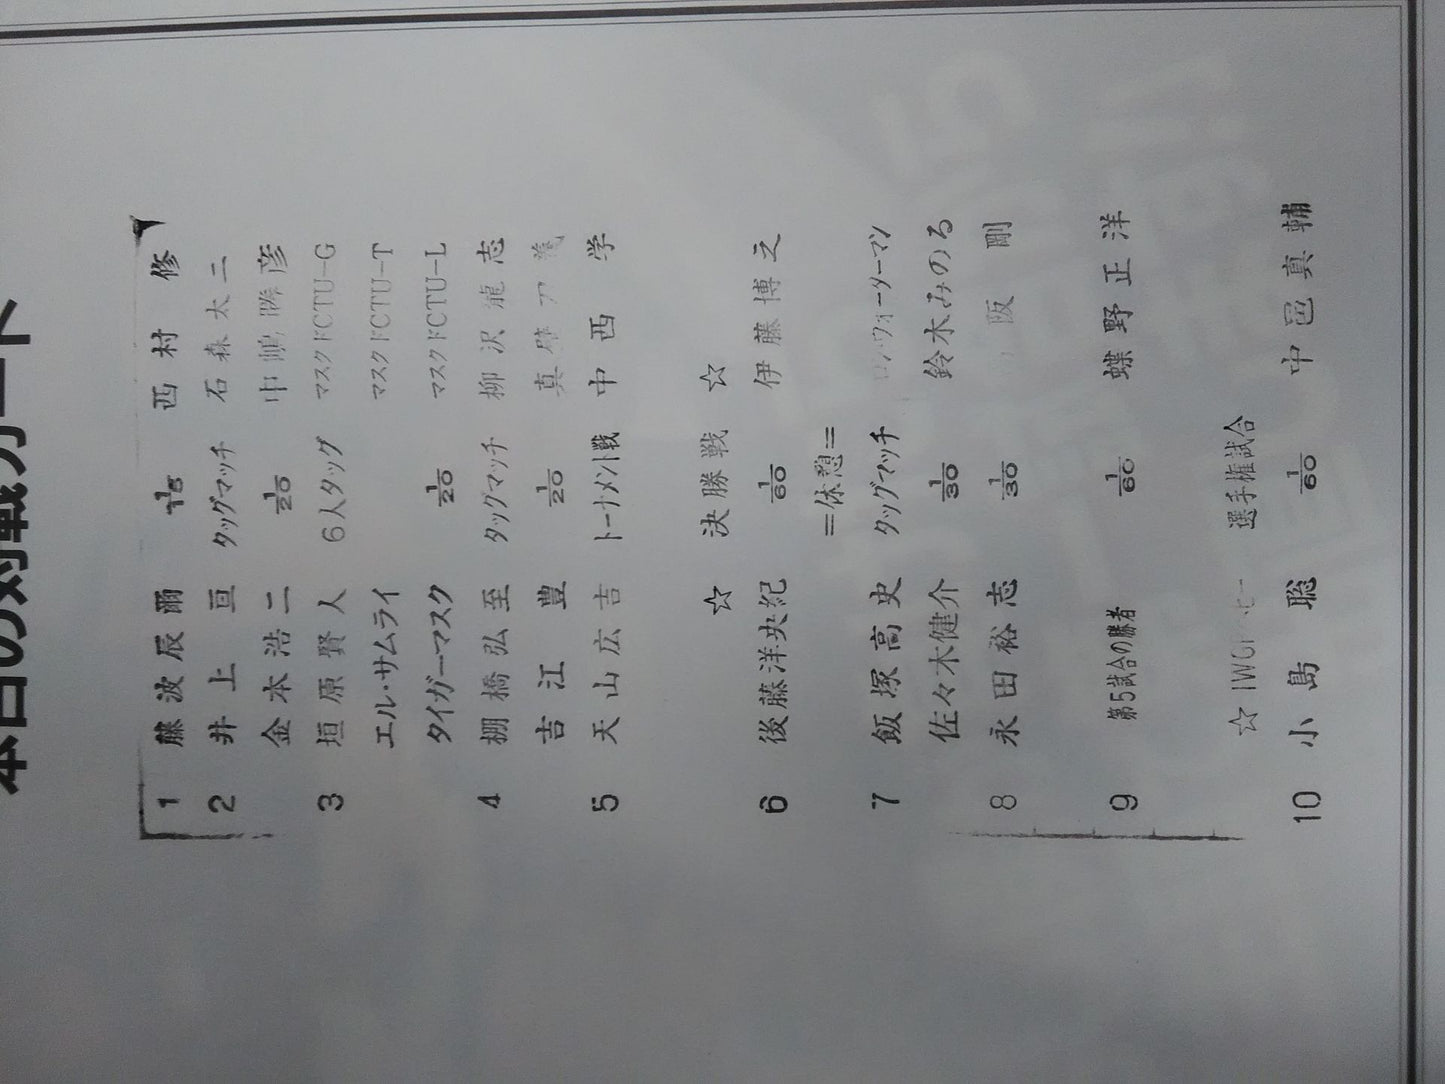 本日の対戦カード
1 藤波辰爾 1/15 西村 修
2 井上 亘 タッグマッチ 石森太二
金本浩二 1/20 中嶋勝彦
3 垣原賢人 6人タッグ マスクドCTU-G
エル・サムライ マスクドCTU-T
タイガーマスク 1/20 マスクドCTU-L
4 棚橋弘至 タッグマッチ 柳沢龍志
吉江 豊 1/20 真壁刀義
5 天山広吉 トーナメント戦 中西 学
☆ 決勝戦 ☆
6 後藤洋央紀 1/60 伊藤博之
=休憩=
7 飯塚高史 タッグマッチ ロン・ウォーターマン
佐々木健介 1/30 鈴木みのる
8 永田裕志 1/30 阪 剛
9 第5試合の勝者 1/60 蝶野正洋
☆ IWGP 選手権試合
10 小島 聡 1/60 中邑真輔